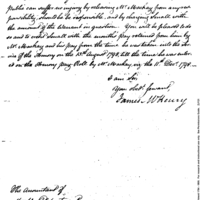 Public can suffer no injury by relieving Mr. Mackay from any res-
ponsibility, should he be responsible, and by charging Small with
the amount of the Warrant in question. You will be pleased to do
so and to credit Small with the months pay retained from him by
Mr. Mackay and his pay from the time he was taken into the Ser-
vice of the Armory on the 13th August 1798, till the time he was enter-
ed on the Armory pay Roll by Mr. Mackay, viz. the 11th Decr. 1798.—
I am Sir
Your obed. Servant,
James McHenry
The Accountant of